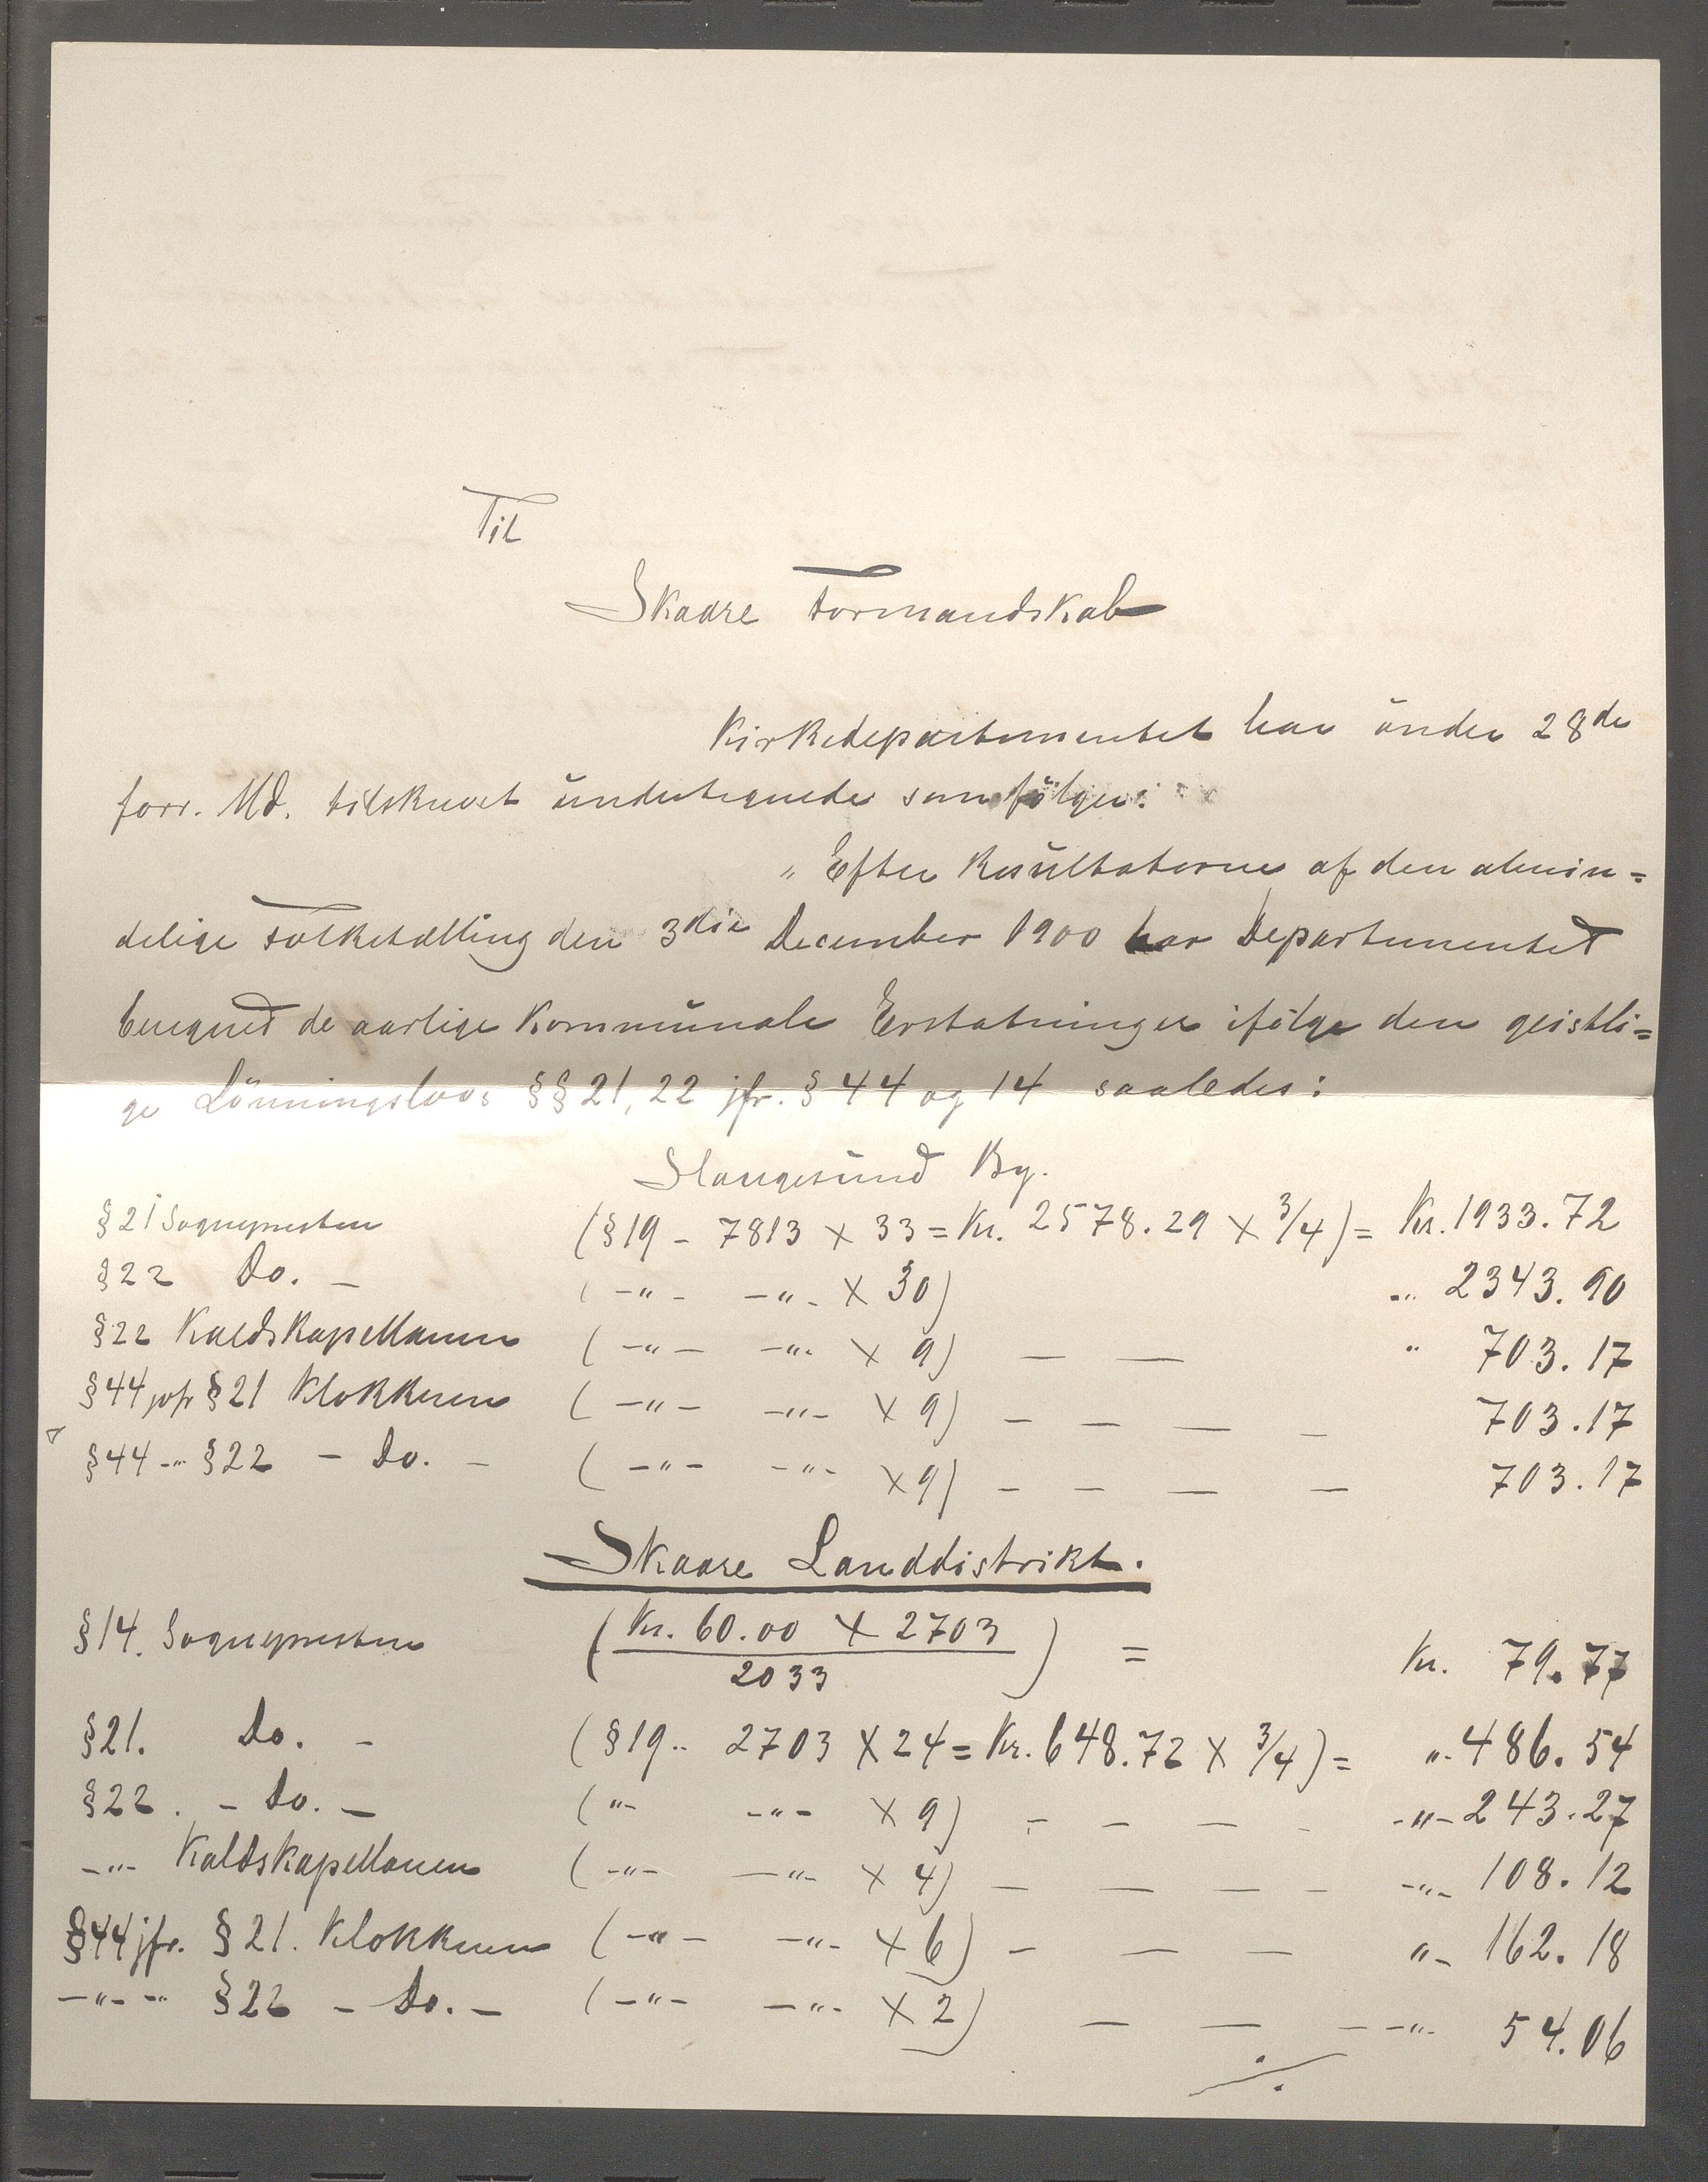 Til
Skaare Formandskab
Kirkedepartementet har ŭnder 28de
forr. Md. tilskrevet ŭndertegnede som følger:
"Efter Resŭltaterne af den almin=
delige Folketælling den 3die December 1900 har Departementet
beregnet de aarlige Kommŭnale Erstatninger ifølge den geistli=
ge Lönningslovs §§ 21, 22 jfr. § 44 og 14 saaledes:
Haugesŭnd By.
§ 21 Sognepresten (§ 19 - 7813 × 33 = Kr. 2578.29 × 3/4) = Kr. 1933.72
§ 22 Do. - ( -"- -"- × 30) -"- 2343.90
§ 22 Kaldskapellanen ( -"- -"- × 9) — — " 703.17
§ 44 jvfr § 21 Klokkeren ( -"- -"- × 9) - — — - 703.17
§ 44 -"- § 22 - Do. - ( -"- -"- × 9) - - — — 703.17
Skaare Landdistrikt.
§ 14. Sognepresten (Kr. 60.00 × 2703 / 2033) = Kr. 79.77
§ 21. Do. - (§ 19 -"- 2703 × 24 = Kr. 648.72 × 3/4) = "- 486.54
§ 22. - Do. - ( "- -"- × 9) - - — - -"- 243.27
-"- Kaldskapellanen ( -"- -"- × 4) — — — - -"- 108.12
§ 44 jfr. § 21. Klokkeren ( -"- -"- × 6) - — — "- 162.18
-"- -"- § 22 - Do. - ( -"- -"- × 2) — — - -"- 54.06
./.